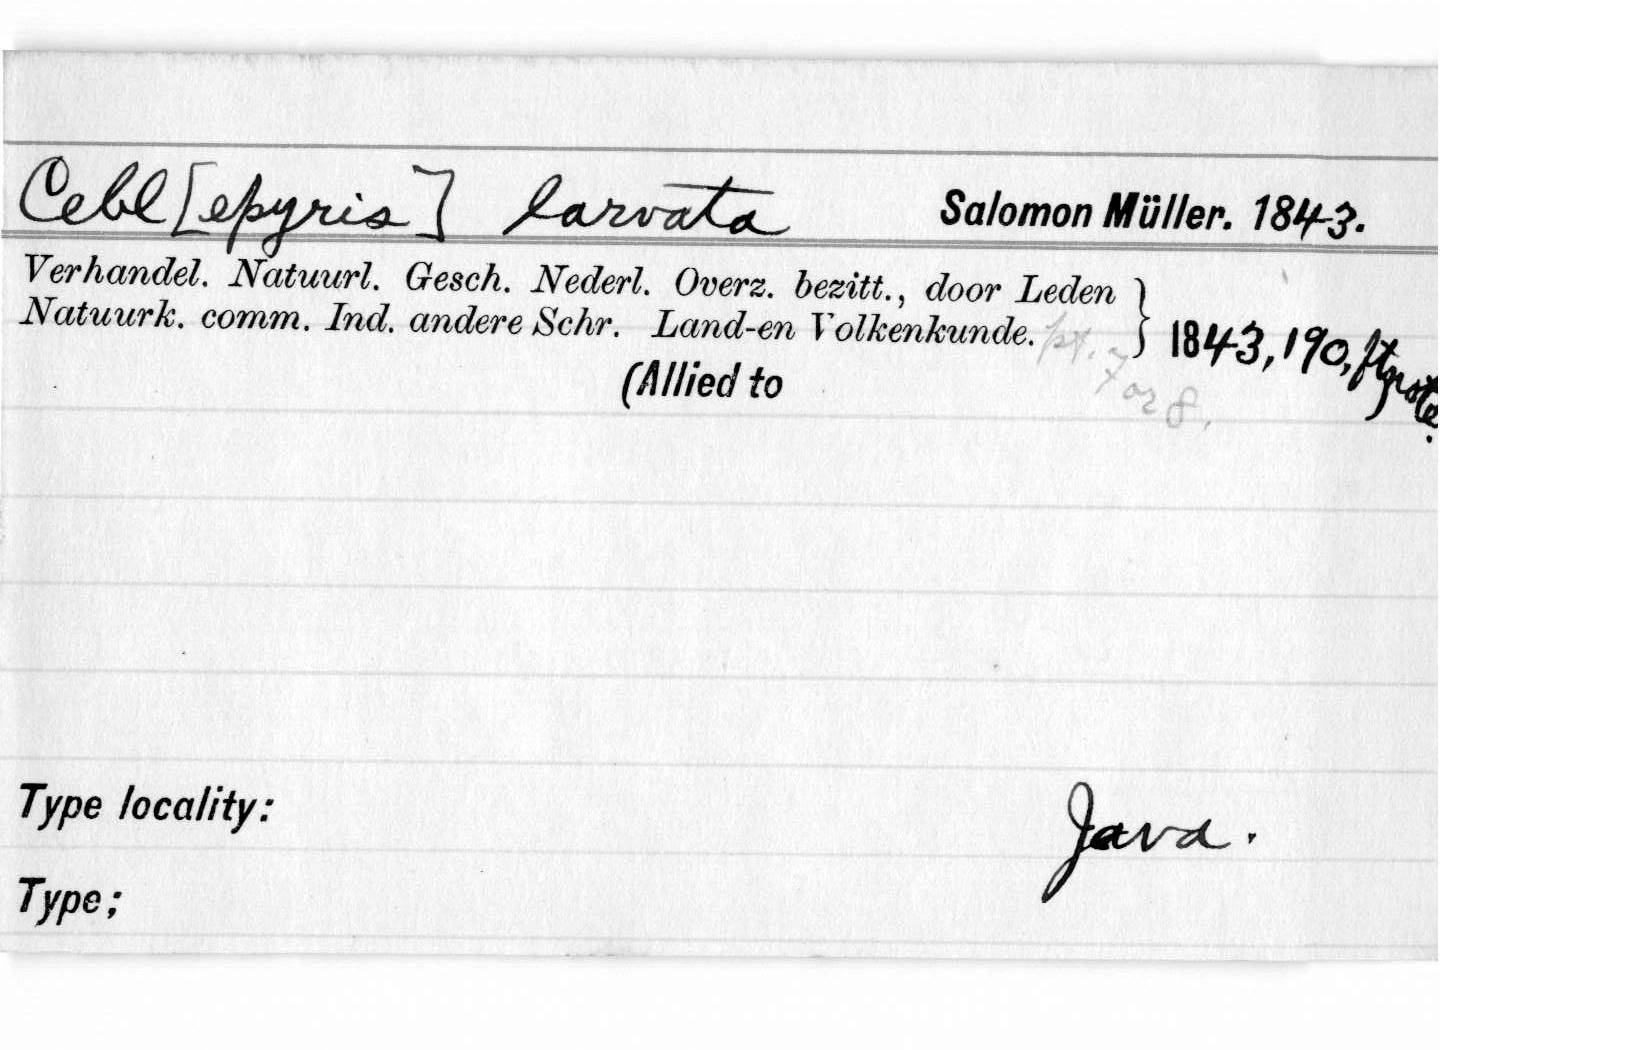 Cebl[epyris] larvata Salomon Müller. 1843.
Verhandel. Natuurl. Gesch. Nederl. Overz. bezitt., door Leden
Natuurk. comm. Ind. andere Schr. Land-en Volkenkunde. } 1843, 190, ftnote.
pt. 7 or 8.
(Allied to
Type locality: Java.
Type;